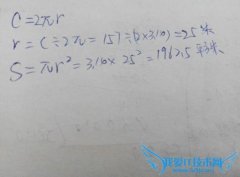 C=2πr
r=C÷2π=157÷(2×3.14)=25米
S=πr²=3.14×25²=1962.5平方米